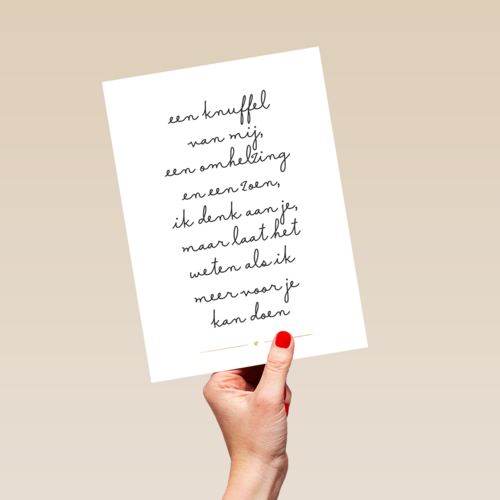 een knuffel
van mij,
een omhelzing
en een zoen,
ik denk aan je,
maar laat het
weten als ik
meer voor je
kan doen